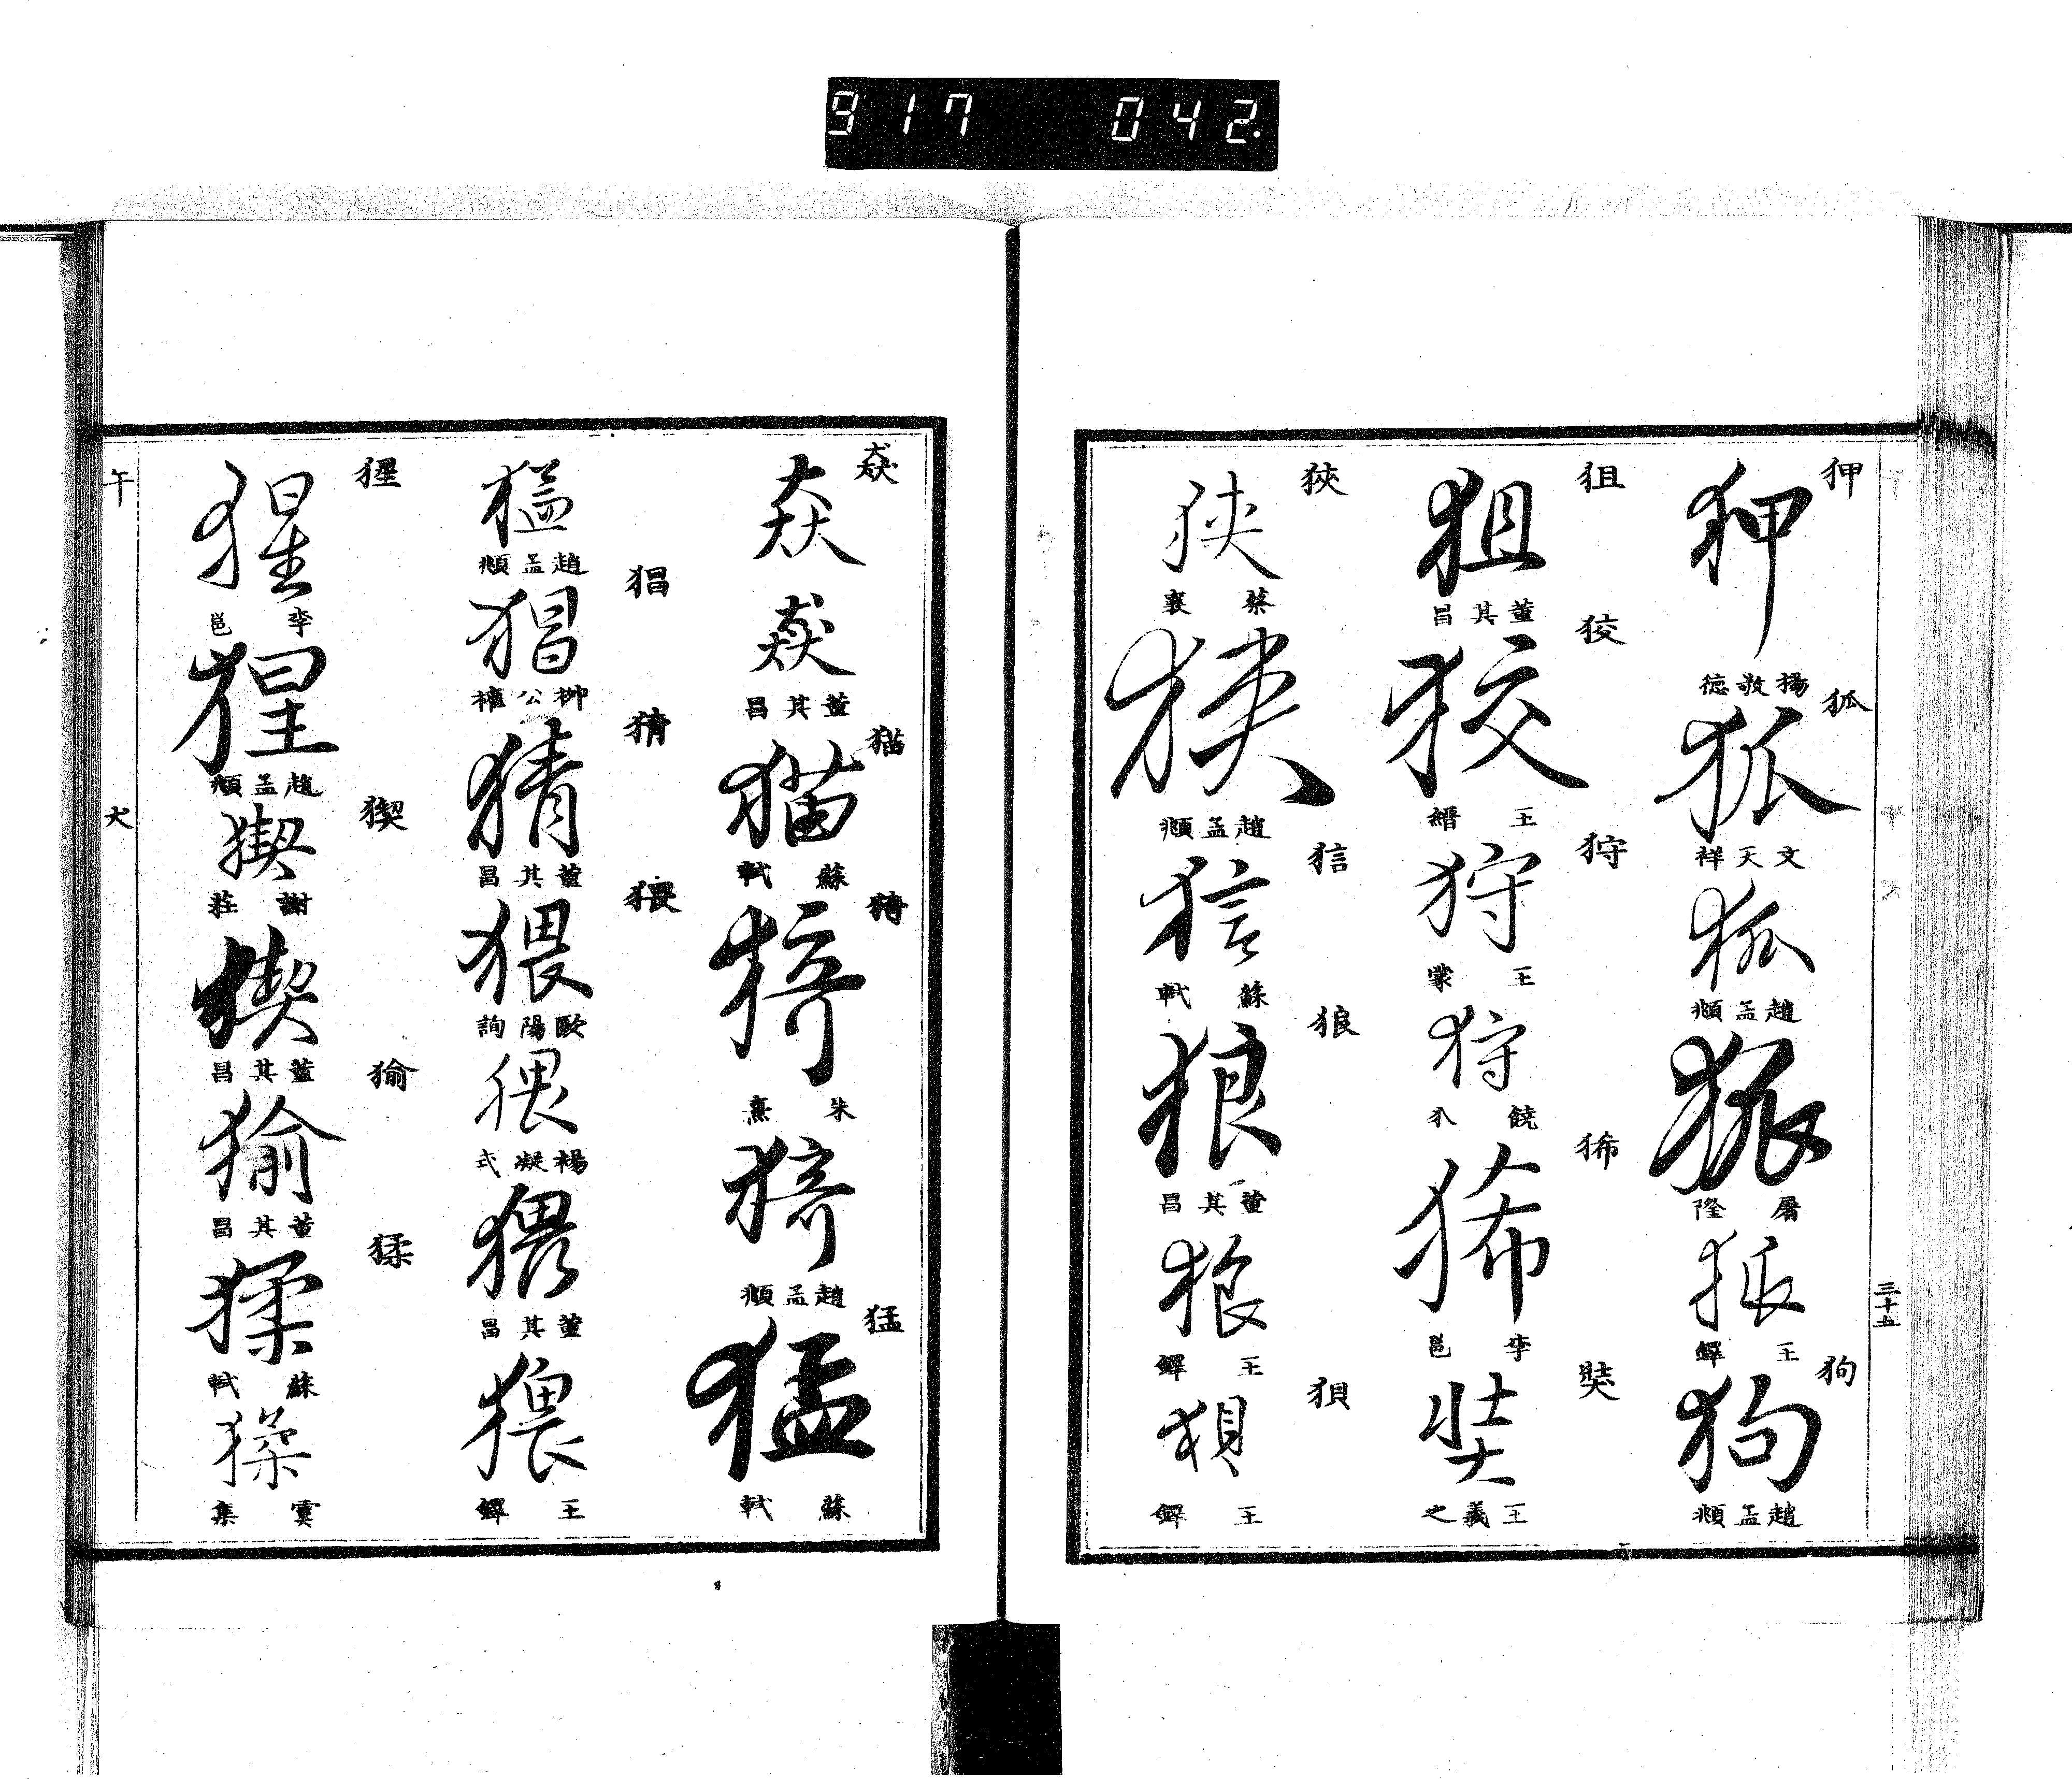 917 042
狎
狎
楊敬德
狐
狐
文天祥
狐
趙孟頫
狐
屠隆
狐
王鐸
狗
狗
趙孟頫
三十五
狙
狙
董其昌
狡
狡
王縉
狩
狩
王蒙
狩
饒介
狶
狶
李邕
奘
奘
王羲之
狹
狹
蔡襄
狹
趙孟頫
狺
狺
蘇軾
狼
狼
董其昌
狼
王鐸
狽
狽
王鐸
猋
猋
猋
董其昌
猫
猫
蘇軾
猗
猗
朱熹
猗
趙孟頫
猛
猛
蘇軾
猛
趙孟頫
猖
猖
柳公權
猜
猜
董其昌
猥
猥
歐陽詢
猥
楊凝式
猥
董其昌
猥
王鐸
猩
猩
李邕
猩
趙孟頫
猰
猰
謝莊
猰
董其昌
㺄
㺄
董其昌
猱
猱
蘇軾
猱
虞集
午
犬